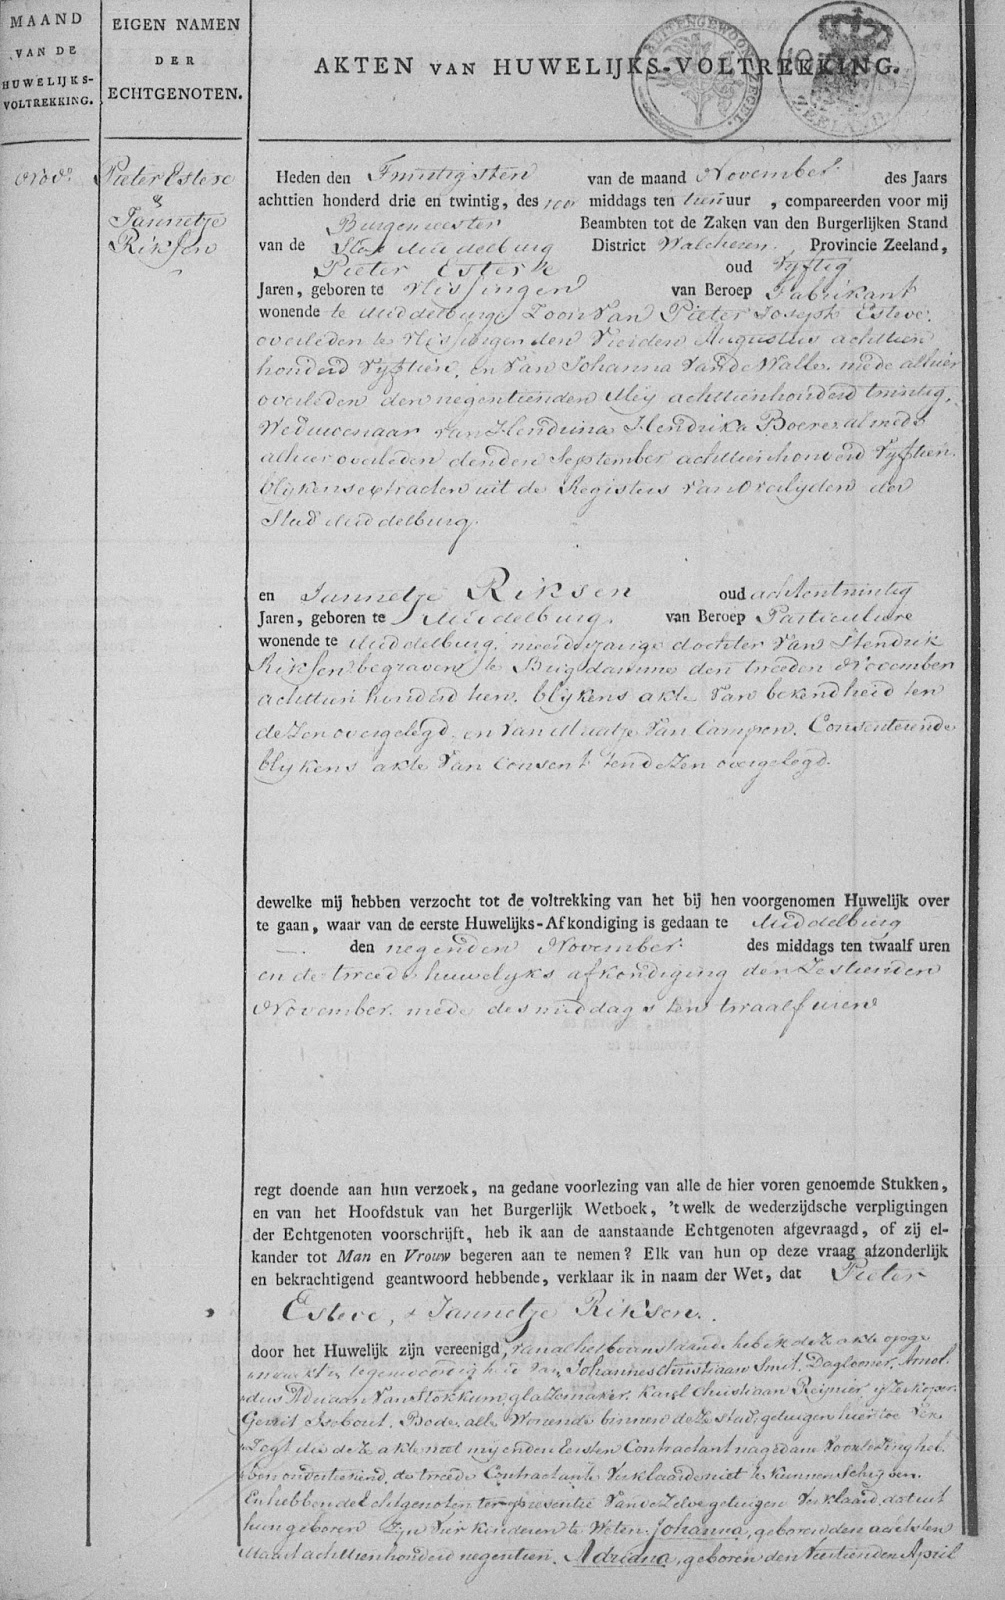 MAAND
VAN DE
HUWELIJKS-
VOLTREKKING.
EIGEN NAMEN
DER
ECHTGENOTEN.
AKTEN VAN HUWELIJKS-VOLTREKKING.
BUITENGEWOON ZEGEL.
ZEELAND
Novr
Pieter Esteve
&
Jannetje
Riksen
Heden den Twintigsten van de maand November des Jaars
achttien honderd drie en twintig, des voor middags ten tien uur, compareerden voor mij
Burgemeester Beambten tot de Zaken van den Burgerlijken Stand
van de Stad Middelburg District Walcheren. Provincie Zeeland,
Pieter Esteve oud Vyftig
Jaren, geboren te Vlissingen van Beroep Fabrikant
wonende te Middelburg Zoon van Pieter Joseph Esteve,
overleden te Vlissingen den Vierden Augustus achttien
honderd Vyftien, en van Johanna van de Walle, mede alhier
overleden den negentienden Mey achttienhonderd twintig,
Weduwenaar van Hendrina Hendrika Boeree almede
alhier overleden den September achttienhonderd Vyftien
blykens extracten uit de Registers van Overlyden der
Stad Middelburg.
en Jannetje Riksen oud achtentwintig
Jaren, geboren te Middelburg. van Beroep Particuliere
wonende te Middelburg, meerderjarige dochter van Hendrik
Riksen begraven te Brigdamme den tweeden November
achttien honderd tien, blykens akte van bekendheid ten
dezen overgelegd, en van Maatje van Campen, Consenterende
blykens akte van Consent ten dezen overgelegd.
dewelke mij hebben verzocht tot de voltrekking van het bij hen voorgenomen Huwelijk over
te gaan, waar van de eerste Huwelijks-Afkondiging is gedaan te Middelburg
den negenden November des middags ten twaalf uren
en de tweede huwelyks afkondiging den Zestienden
November mede des middags ten twaalf uren
regt doende aan hun verzoek, na gedane voorlezing van alle de hier voren genoemde Stukken,
en van het Hoofdstuk van het Burgerlijk Wetboek, 't welk de wederzijdsche verpligtingen
der Echtgenoten voorschrift, heb ik aan de aanstaande Echtgenoten afgevraagd, of zij el-
kander tot Man en Vrouw begeren aan te nemen? Elk van hun op deze vraag afzonderlijk
en bekrachtigend geantwoord hebbende, verklaar ik in naam der Wet, dat Pieter
Esteve, & Jannetje Riksen.
door het Huwelijk zijn vereenigd, van al het bovenstaande heb ik deze akte opge
maakt in tegenwoordigheid van Johannes Christiaan Smit, Daglooner, Arnol
dus Adriaan van Stokkum, glazemaker, Karel Christiaan Reijnier, yzerkoper
Gerrit Isebout, Bode, alle Wonende binnen deze stad, getuigen hier toe Ver
zogt die deze akte met my en den Eersten Contractant na gedane Voorlezing heb
ben ondertekend, de tweede Contractante Verklaarde niet te kunnen Schryven.
En hebben de Echtgenoten ter presentie van dezelve getuigen Verklaard, dat uit
hun geboren zyn Vier kinderen te Weten: Johanna, geboren den achtsten
Maart achttienhonderd negentien, Adriana, geboren den Veertienden April